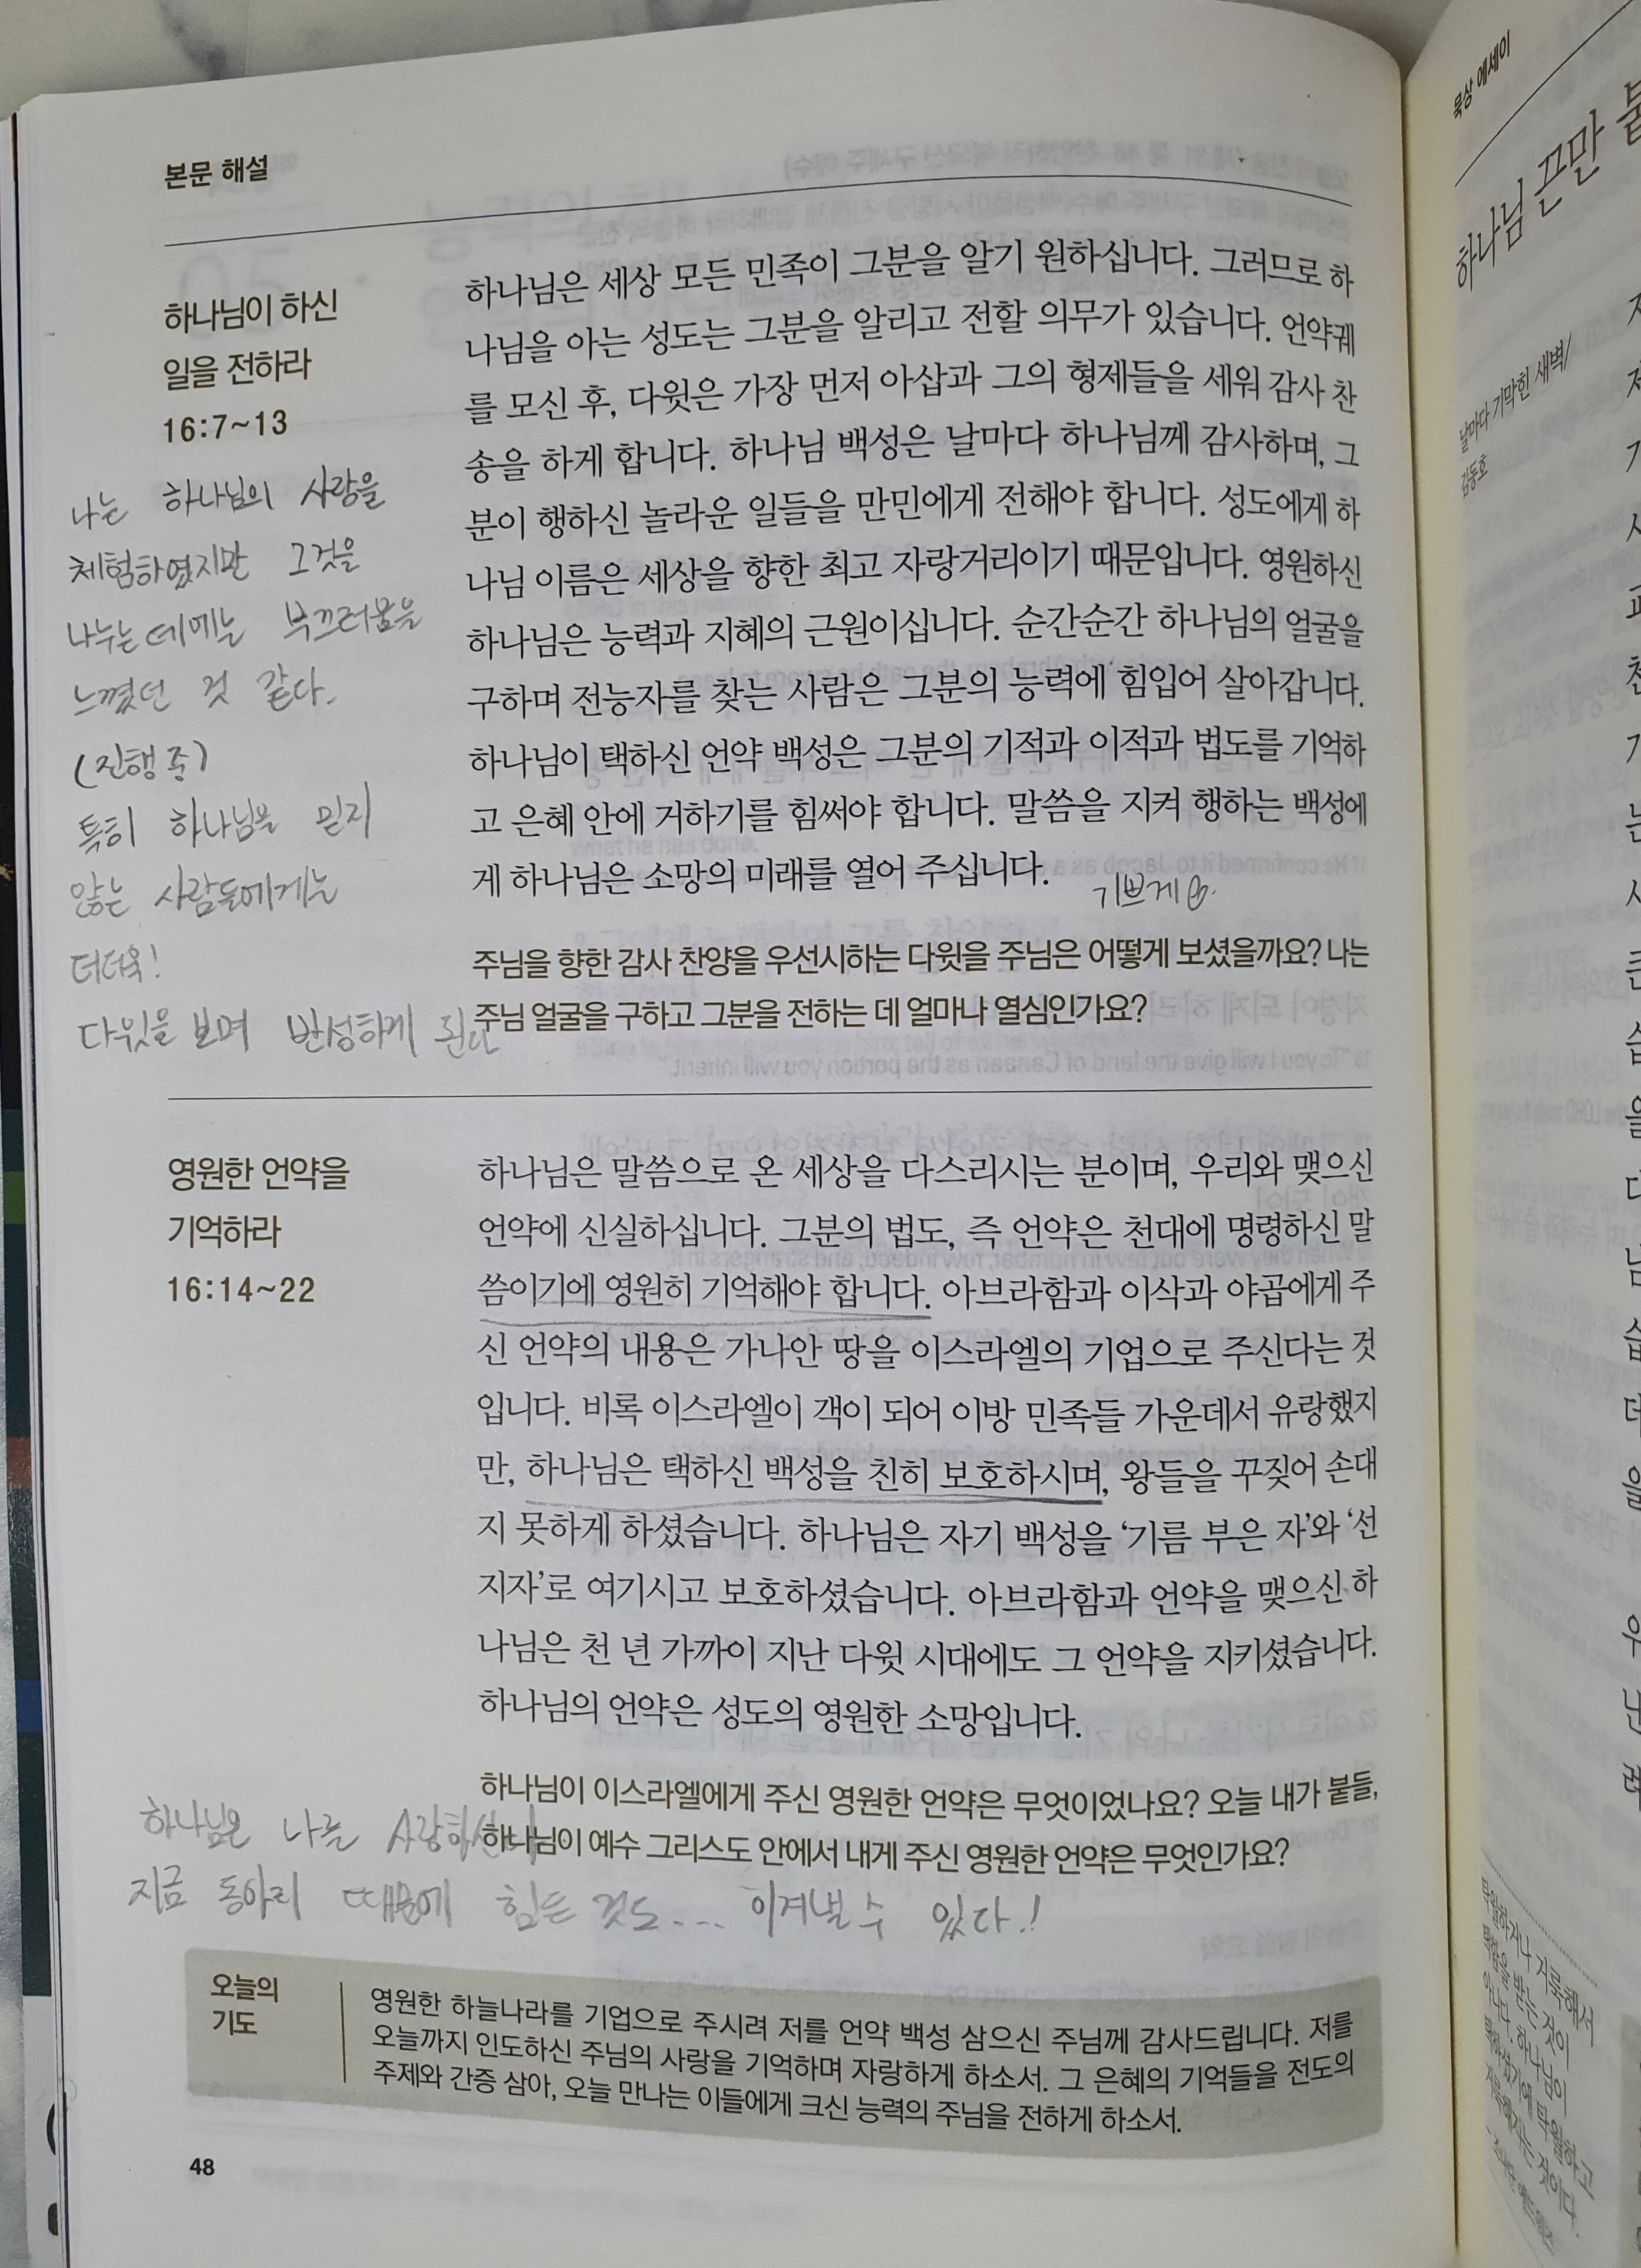 본문 해설
하나님이 하신
일을 전하라
16:7~13
하나님은 세상 모든 민족이 그분을 알기 원하십니다. 그러므로 하
나님을 아는 성도는 그분을 알리고 전할 의무가 있습니다. 언약궤
를 모신 후, 다윗은 가장 먼저 아삽과 그의 형제들을 세워 감사 찬
송을 하게 합니다. 하나님 백성은 날마다 하나님께 감사하며, 그
분이 행하신 놀라운 일들을 만민에게 전해야 합니다. 성도에게 하
나님 이름은 세상을 향한 최고 자랑거리이기 때문입니다. 영원하신
하나님은 능력과 지혜의 근원이십니다. 순간순간 하나님의 얼굴을
구하며 전능자를 찾는 사람은 그분의 능력에 힘입어 살아갑니다.
하나님이 택하신 언약 백성은 그분의 기적과 이적과 법도를 기억하
고 은혜 안에 거하기를 힘써야 합니다. 말씀을 지켜 행하는 백성에
게 하나님은 소망의 미래를 열어 주십니다.
기쁘게
주님을 향한 감사 찬양을 우선시하는 다윗을 주님은 어떻게 보셨을까요? 나는
주님 얼굴을 구하고 그분을 전하는 데 얼마나 열심인가요?
나는 하나님의 사랑을
체험하였지만 그것을
나누는데에는 부끄러움을
느꼈던 것 같다.
(진행 중)
특히 하나님을 믿지
않는 사람들에게는
더더욱!
다윗을 보며 반성하게 된다
영원한 언약을
기억하라
16:14~22
하나님은 말씀으로 온 세상을 다스리시는 분이며, 우리와 맺으신
언약에 신실하십니다. 그분의 법도, 즉 언약은 천대에 명령하신 말
씀이기에 영원히 기억해야 합니다. 아브라함과 이삭과 야곱에게 주
신 언약의 내용은 가나안 땅을 이스라엘의 기업으로 주신다는 것
입니다. 비록 이스라엘이 객이 되어 이방 민족들 가운데서 유랑했지
만, 하나님은 택하신 백성을 친히 보호하시며, 왕들을 꾸짖어 손대
지 못하게 하셨습니다. 하나님은 자기 백성을 ‘기름 부은 자’와 ‘선
지자’로 여기시고 보호하셨습니다. 아브라함과 언약을 맺으신 하
나님은 천 년 가까이 지난 다윗 시대에도 그 언약을 지키셨습니다.
하나님의 언약은 성도의 영원한 소망입니다.
하나님이 이스라엘에게 주신 영원한 언약은 무엇이었나요? 오늘 내가 붙들,
하나님이 예수 그리스도 안에서 내게 주신 영원한 언약은 무엇인가요?
하나님은 나를
지금 동아리 때문에 힘든 것도... 이겨낼 수 있다!
오늘의
기도
영원한 하늘나라를 기업으로 주시려 저를 언약 백성 삼으신 주님께 감사드립니다. 저를
오늘까지 인도하신 주님의 사랑을 기억하며 자랑하게 하소서. 그 은혜의 기억들을 전도의
주제와 간증 삼아, 오늘 만나는 이들에게 크신 능력의 주님을 전하게 하소서.
48
묵상 에세이
하나님 끈만
날마다 기막힌 새벽/
김동호
탁월하거나 거룩해서
택함을 받는 것이
아니다. 하나님이
택하셨기에 탁월하고
거룩해지는 것이다.